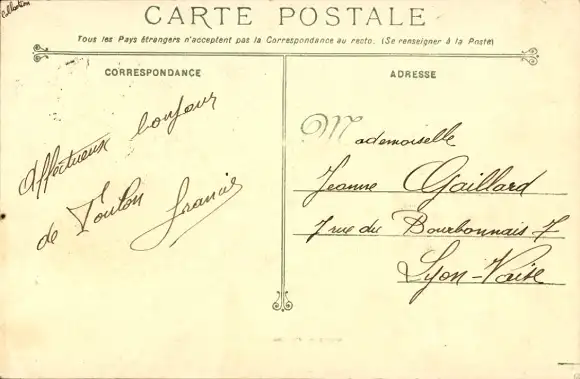 Collection
CARTE POSTALE
Tous les Pays étrangers n'acceptent pas la Correspondance au recto. (Se renseigner à la Poste)
CORRESPONDANCE
Affectueux bonjour
de Toulon Francis
ADRESSE
Mademoiselle
Jeanne Gaillard
7 rue du Bourbonnais 7
Lyon-Vaise